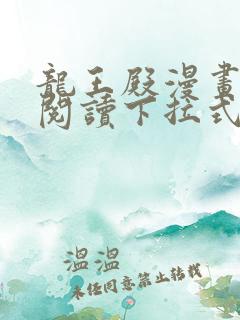 龍王殿漫畫
閱讀下拉式
溫溫
未经同意禁止转载